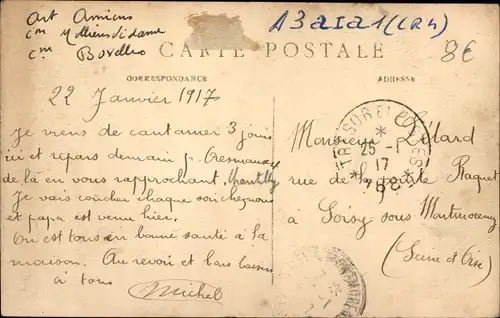 art Amiens
cm Molliens Vidame
cm Bovelles
A3a1a1 (CR4)
8€
CARTE POSTALE
CORRESPONDANCE
ADRESSE
22 Janvier 1917
TRESOR ET POSTES
Je viens de cantonner 3 jours
ici et repars demain p. Cresmaux
de là en vous rapprochant. Chantilly
Je vais coucher chaque soir chez nous
et papa est venu hier.
On est tous en bonne santé à la
maison. Au revoir et bons baisers
à tous
Michel
Monsieur
rue de la Raquet
à Soisy sous Montmorency
(Seine et Oise)